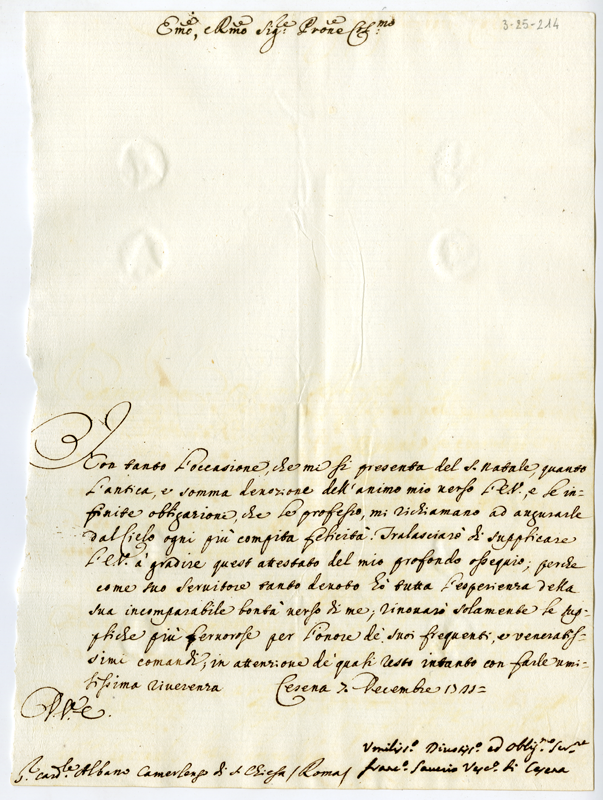 3-25-214
Emo, e Rmo Sig.re Prone Col.mo
Non tanto l'occasione, che mi si presenta del S. Natale, quanto
l'antica, e somma devozione dell'animo mio verso l'E.V., e le in-
finite obbligazione, che le professo, mi richiamano ad augurarle
dal Cielo ogni più compita felicità. Tralasciarò di supplicare
l'E.V. à gradire quest'attestato del mio profondo ossequio; perche
come suo servitore tanto devoto hò tutta l'esperienza della
sua incomparabile bontà verso di me; rinovarò solamente le sup-
pliche più fervorose per l'onore de' suoi frequenti, e veneratis-
simi comandi, in attenzione de' quali resto intanto con farle umi-
lissima riverenza Cesena 7. Decembre 1711=
Umiliss.o Divotiss.o ed Oblig.mo Ser.re
S.r Card.le Albano Camerlengo di S. Chiesa / Roma /
Franc.o Saverio Vesc.o di Cesena